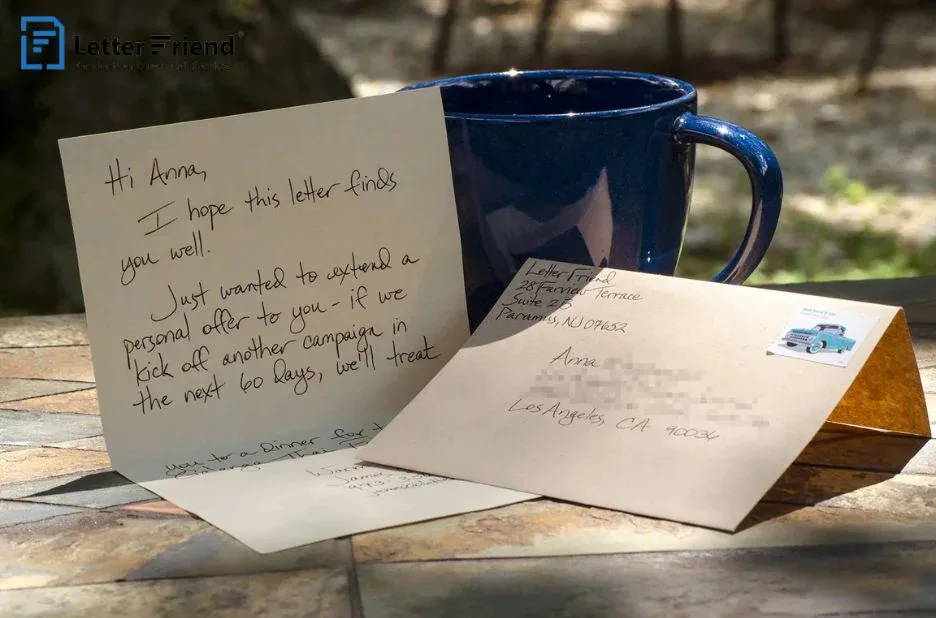 Letter Friend
Hi Anna,
I hope this letter finds
you well.
Just wanted to extend a
personal offer to you - if we
kick off another campaign in
the next 60 days, we'll treat
you to a Dinner for
Letter Friend
28 Farview Terrace
Suite 2B
Paramus, NJ 07652
Anna
Los Angeles, CA 90036